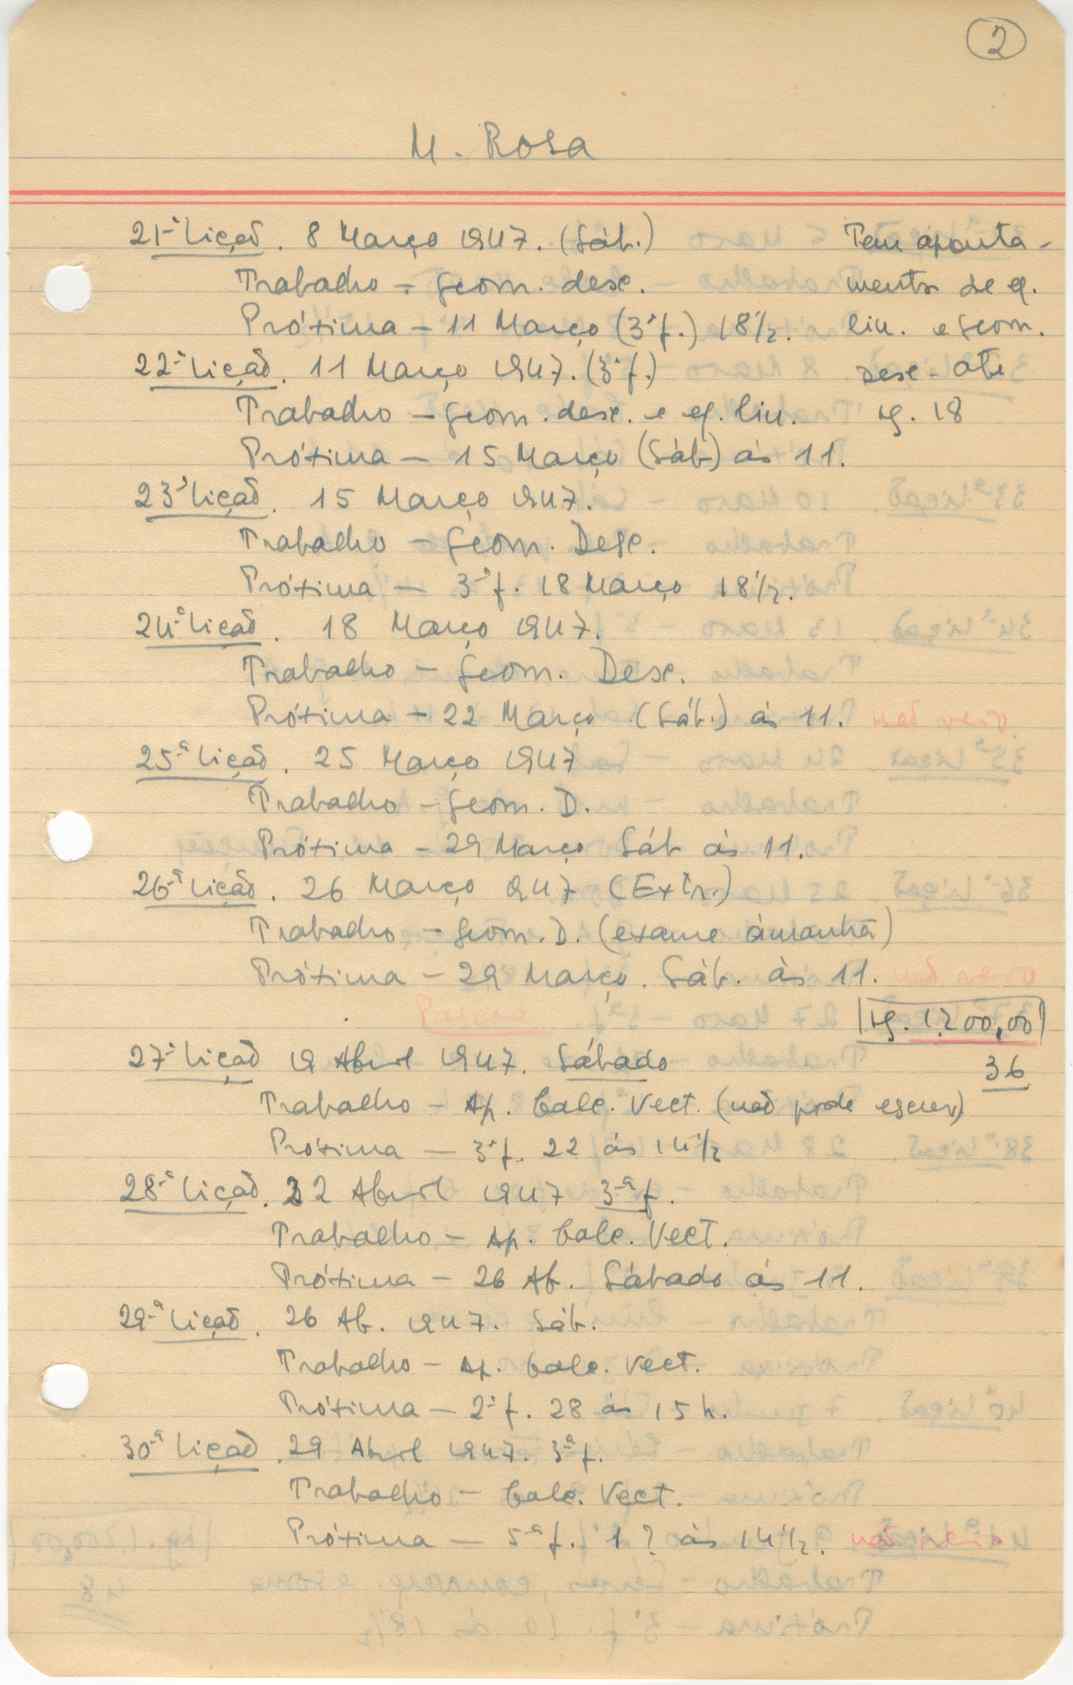 2
M. Rosa
21ª Lição. 8 Março 1947. (Sáb.) Tem aponta-
Trabalho - Geom. desc. mentos de eq.
Próxima - 11 Março (3ª f.) 18½. lin. e Geom.
22ª Lição. 11 Março 1947. (3ª f.) Desc. até
Trabalho - Geom. desc. e eq. lin. pg. 18
Próxima - 15 Março (Sáb) às 11.
23ª Lição. 15 Março 1947.
Trabalho - Geom. Desc.
Próxima - 3ª f. 18 Março 18½.
24ª Lição. 18 Março 1947.
Trabalho - Geom. Desc.
Próxima - 22 Março (Sáb.) às 11.
25ª Lição. 25 Março 1947
Trabalho - Geom. D.
Próxima - 29 Março Sáb às 11.
26ª Lição. 26 Março 947 (Extr.)
Trabalho - Geom. D. (exame àmanhã)
Próxima - 29 Março. Sáb. às 11.
Pg. 1.200,00
27ª Lição 19 Abril 1947. Sábado 36
Trabalho - Ap. Calc. Vect. (não pode escrev)
Próxima - 3ª f. 22 às 14½
28ª Lição. 22 Abril 1947 3ª f.
Trabalho - Ap. Calc. Vect.
Próxima - 26 Ab. Sábado às 11.
29ª Lição. 26 Ab. 1947. Sáb.
Trabalho - Ap. Calc. Vect.
Próxima - 2ª f. 28 às 15 h.
30ª Lição. 29 Abril 1947. 3ª f.
Trabalho - Calc. Vect.
Próxima - 5ª f. 1? às 14½. não